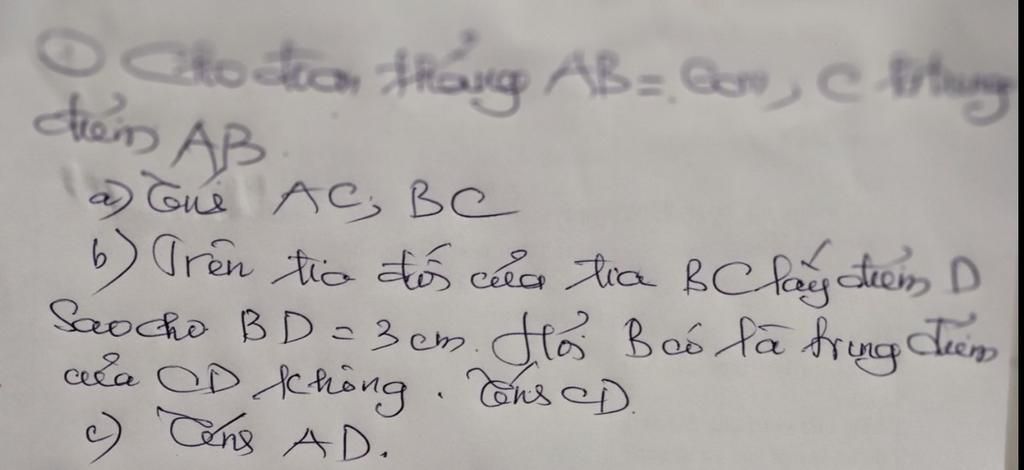 ① Cho đoạn thẳng AB = 6cm, C trung
điểm AB.
a) Tính AC; BC
b) Trên tia đối của tia BC lấy điểm D
Sao cho BD = 3 cm. Hỏi B có là trung điểm
của CD không. Tính CD.
c) Tính AD.